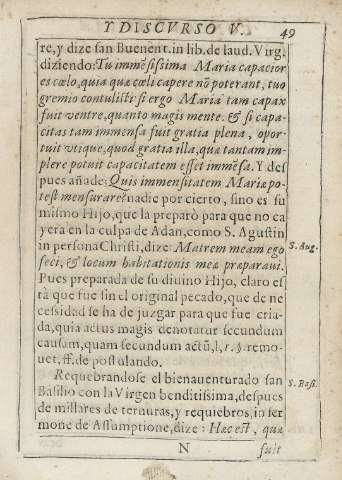 Y DISCVRSO V. 49
re, y dize san Buenent. in lib. de laud. Virg.
diziendo: Tu immẽsissima Maria capacior
es cœlo, quia quæ cœli capere nõ poterant, tuo
gremio contulisti: si ergo Maria tam capax
fuit ventre, quanto magis mente: & si capa-
citas tam immensa fuit gratia plena, opor-
tuit vtique, quod gratia illa, quæ tantam im-
plere potuit capacitatem esset immẽsa. Y des
pues añade: Quis immensitatem Mariæ po-
test mensurare? nadie por cierto, sino es su
mismo Hijo, que la preparò para que no ca
yera en la culpa de Adan, como S. Agustin
in persona Christi, dize: Matrem meam ego
S. Aug.
feci, & locum habitationis meæ præparaui.
Pues preparada de su diuino Hijo, claro es
tà que fue sin el original pecado, que de ne
cessidad se ha de juzgar para que fue cria-
da, quia actus magis denotatur secundum
causam, quam secundum actũ, l, 1. §. remo-
uet, ff. de postulando.
Requebrandose el bienauenturado san
S. Basi.
Basilio con la Virgen benditissima, despues
de millares de ternuras, y requiebros, in ser
mone de Assumptione, dize: Hæc est, quæ
N fuit